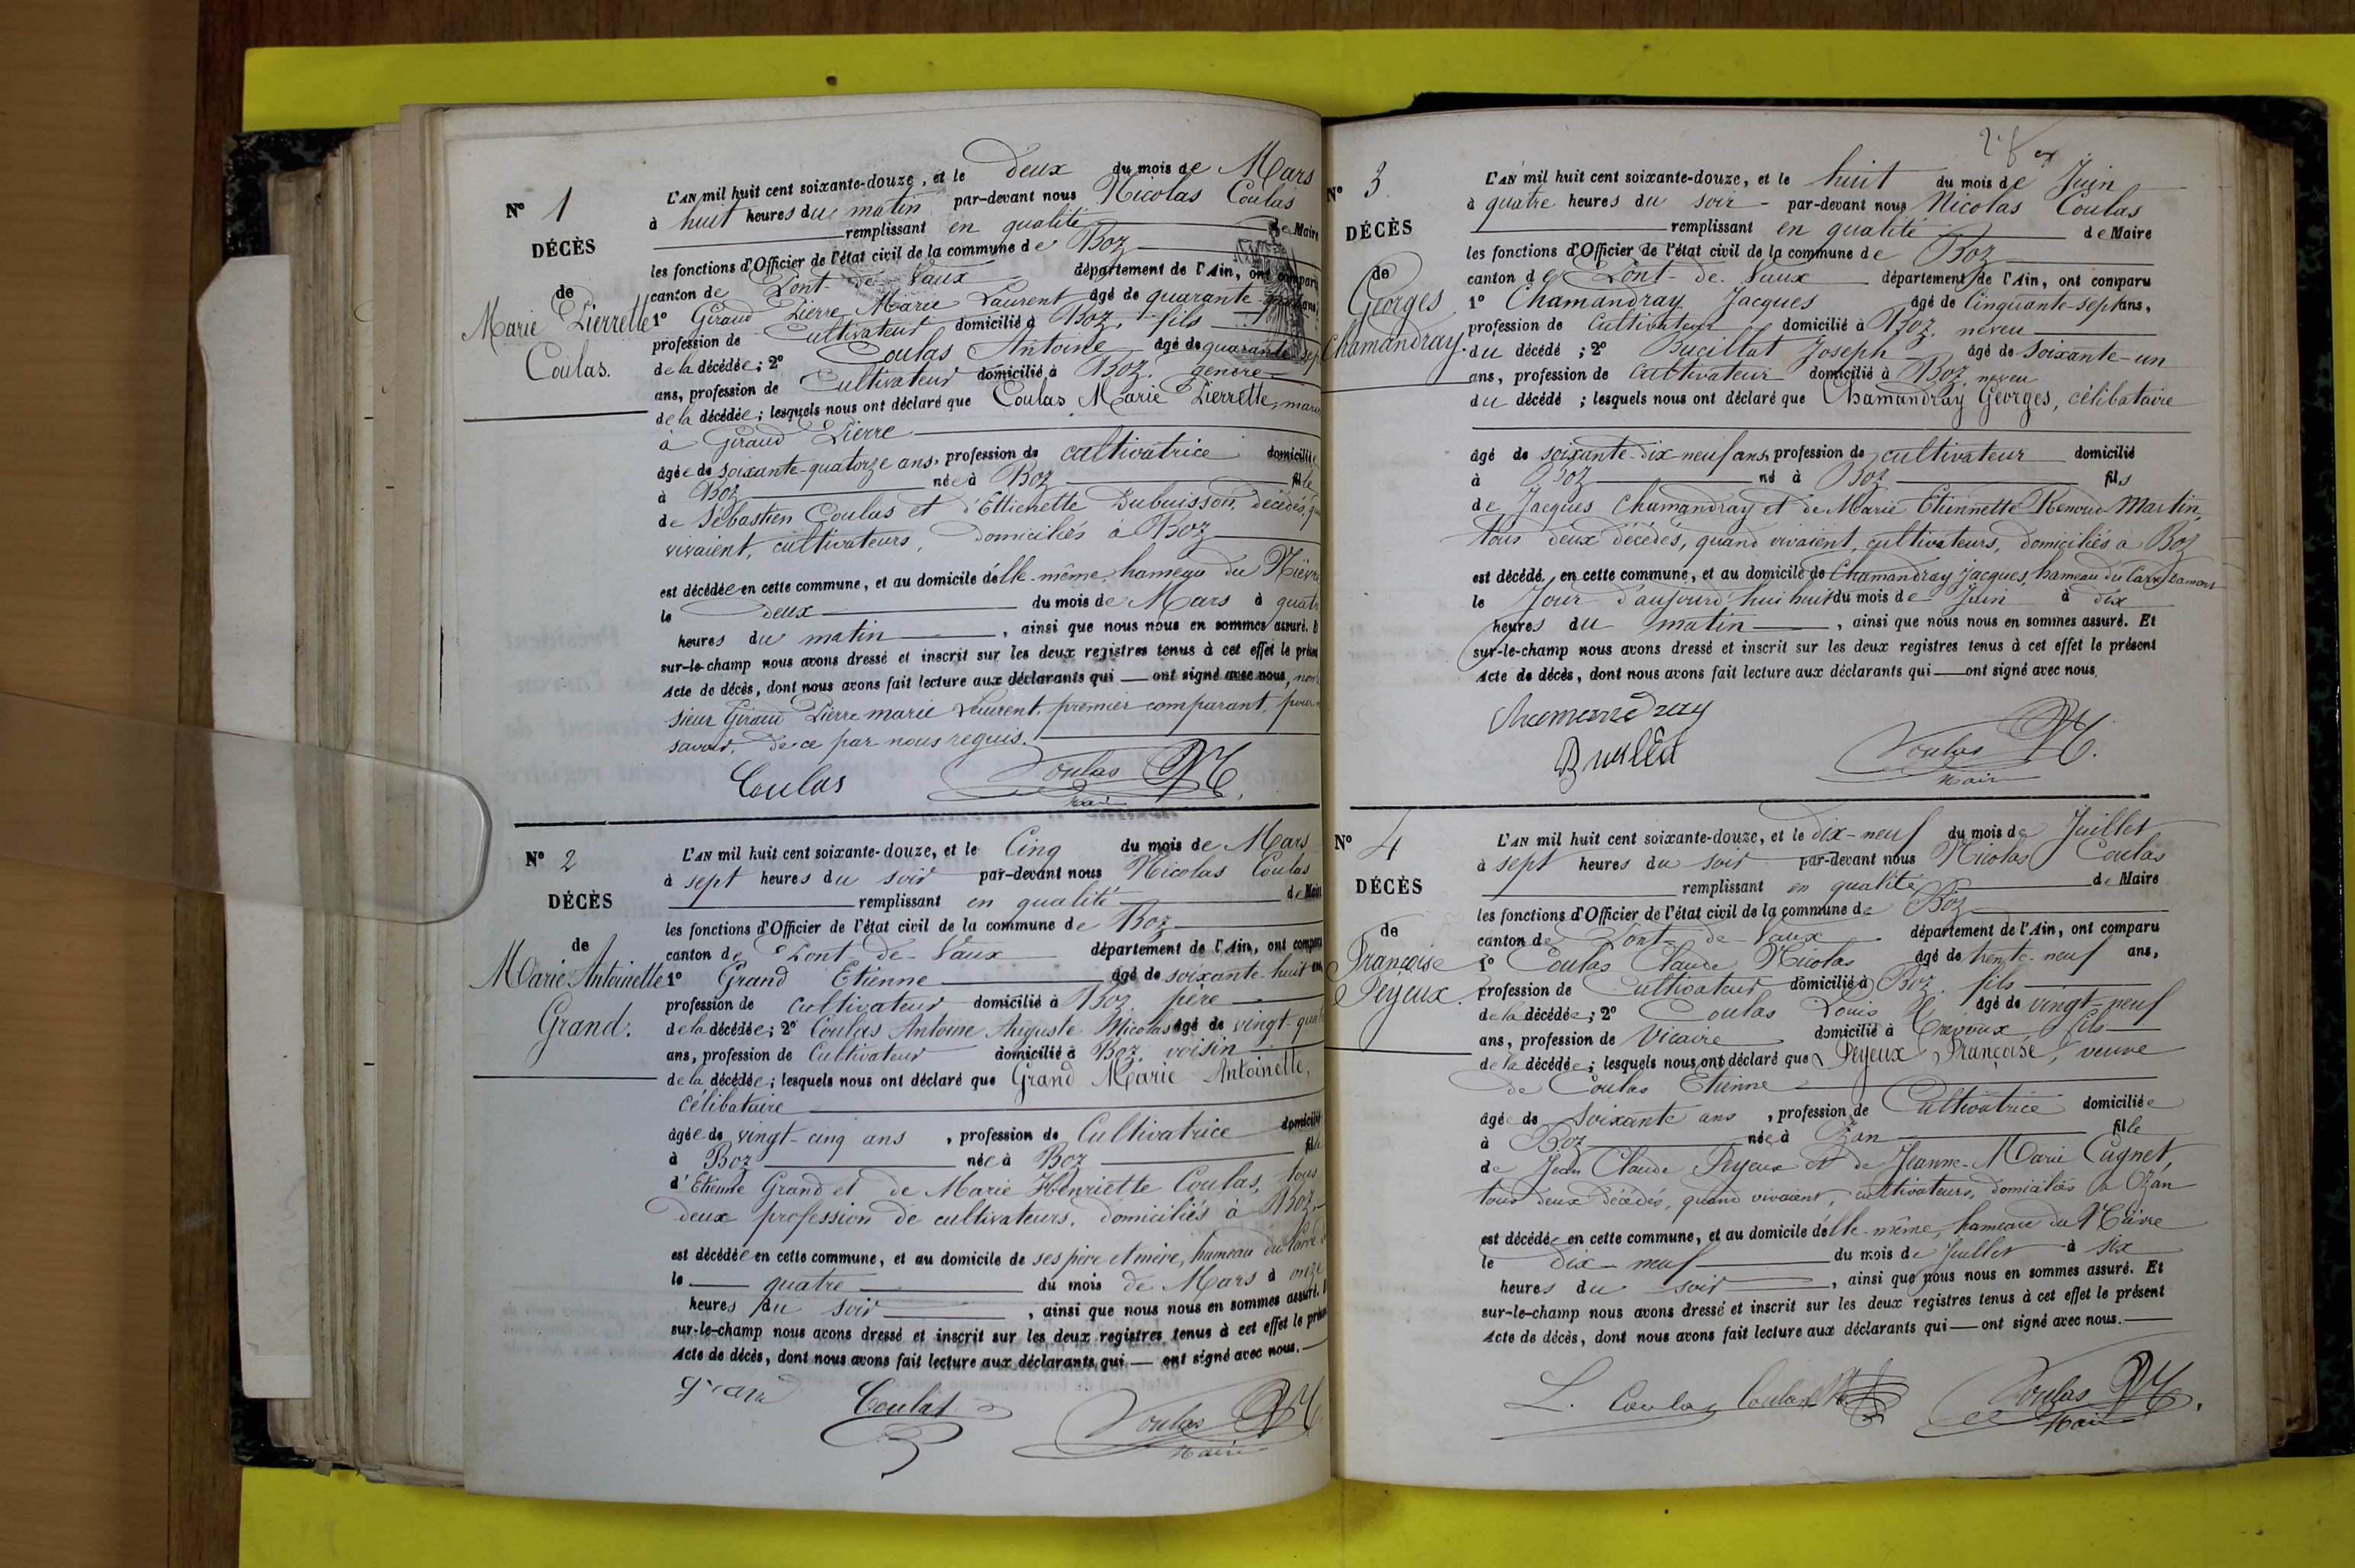 N° 1
DÉCÈS
de
Marie Pierrette
Coulas.
L'AN mil huit cent soixante-douze, et le deux du mois de Mars
à huit heures du matin par-devant nous Nicolas Coulas
remplissant en qualité de Maire
les fonctions d'Officier de l'état civil de la commune de Boz
canton de Pont-de-Vaux département de l'Ain, ont comparu
1° Giraud Pierre Marie Laurent âgé de quarante
profession de Cultivateur domicilié à Boz, fils
de la décédée; 2° Coulas Antoine âgé de quarante-sept
ans, profession de Cultivateur domicilié à Boz, gendre
de la décédée; lesquels nous ont déclaré que Coulas Marie Pierrette,
à Giraud Pierre
âgée de soixante-quatorze ans, profession de cultivatrice domiciliée
à Boz née à Boz fille
de Sébastien Coulas et d'Ettienette Dubuisson, décédés,
vivaient, cultivateurs, domiciliés à Boz
est décédée en cette commune, et au domicile d'elle-même, hameau du
le deux du mois de Mars à quatre
heures du matin, ainsi que nous nous en sommes assuré.
sur-le-champ nous avons dressé et inscrit sur les deux registres tenus à cet effet le présent
Acte de décès, dont nous avons fait lecture aux déclarants qui — ont signé avec nous, non
sieur Giraud Pierre marie Laurent, premier comparant, pour
savoir, de ce par nous requis.
Coulas Coulas N
Maire
N° 2
DÉCÈS
de
Marie Antoinette
Grand.
L'AN mil huit cent soixante-douze, et le Cinq du mois de Mars
à sept heures du soir par-devant nous Nicolas Coulas
remplissant en qualité de Maire
les fonctions d'Officier de l'état civil de la commune de Boz
canton de Pont-de-Vaux département de l'Ain, ont comparu
1° Grand Etienne âgé de soixante-huit ans
profession de cultivateur domicilié à Boz, père
de la décédée; 2° Coulas Antoine Auguste Nicolas âgé de vingt-quatre
ans, profession de Cultivateur domicilié à Boz, voisin
de la décédée; lesquels nous ont déclaré que Grand Marie Antoinette,
célibataire
âgée de vingt-cinq ans, profession de Cultivatrice domiciliée
à Boz née à Boz fille
d'Etienne Grand et de Marie Henriette Coulas, tous
deux profession de cultivateurs, domiciliés à Boz,
est décédée en cette commune, et au domicile de ses père et mère, hameau du
le quatre du mois de Mars à onze
heures du soir, ainsi que nous nous en sommes assuré.
sur-le-champ nous avons dressé et inscrit sur les deux registres tenus à cet effet le présent
Acte de décès, dont nous avons fait lecture aux déclarants qui — ont signé avec nous.
grand Coulas Coulas N
Maire
N° 3
DÉCÈS
de
Georges
Chamandray.
L'AN mil huit cent soixante-douze, et le huit du mois de Juin
à quatre heures du soir par-devant nous Nicolas Coulas
remplissant en qualité de Maire
les fonctions d'Officier de l'état civil de la commune de Boz
canton de Pont-de-Vaux département de l'Ain, ont comparu
1° Chamandray Jacques âgé de Cinquante-sept ans,
profession de Cultivateur domicilié à Boz, neveu
du décédé; 2° Bucillat Joseph âgé de soixante-un
ans, profession de Cultivateur domicilié à Boz, neveu
du décédé; lesquels nous ont déclaré que Chamandray Georges, célibataire
âgé de soixante-dix-neuf ans, profession de cultivateur domicilié
à Boz né à Boz fils
de Jacques Chamandray et de Marie Etiennette Renoud-Martin,
tous deux décédés, quand vivaient, cultivateurs, domiciliés à Boz
est décédé, en cette commune, et au domicile de Chamandray Jacques, hameau du
le Jour d'aujourd'hui huit du mois de Juin à dix
heures du matin, ainsi que nous nous en sommes assuré. Et
sur-le-champ nous avons dressé et inscrit sur les deux registres tenus à cet effet le présent
Acte de décès, dont nous avons fait lecture aux déclarants qui — ont signé avec nous.
Chamandray
Coulas N
Maire
N° 4
DÉCÈS
de
Françoise
Peyeux.
L'AN mil huit cent soixante-douze, et le dix-neuf du mois de Juillet
à sept heures du soir par-devant nous Nicolas Coulas
remplissant en qualité de Maire
les fonctions d'Officier de l'état civil de la commune de Boz
canton de Pont-de-Vaux département de l'Ain, ont comparu
1° Coulas Claude Nicolas âgé de trente-neuf ans,
profession de Cultivateur domicilié à Boz, fils
de la décédée; 2° Coulas Louis âgé de vingt-neuf
ans, profession de Vicaire domicilié à Trévoux, fils
de la décédée; lesquels nous ont déclaré que Peyeux Françoise, veuve
de Coulas Etienne
âgée de soixante ans, profession de Cultivatrice domiciliée
à Boz née à Ozan fille
de Jean Claude Peyeux et de Jeanne-Marie Cugnet,
tous deux décédés, quand vivaient, cultivateurs, domiciliés à Ozan
est décédée en cette commune, et au domicile d'elle-même, hameau du
le dix-neuf du mois de Juillet à six
heures du soir, ainsi que nous nous en sommes assuré. Et
sur-le-champ nous avons dressé et inscrit sur les deux registres tenus à cet effet le présent
Acte de décès, dont nous avons fait lecture aux déclarants qui — ont signé avec nous.
L. Coulas Coulas Coulas N
Maire